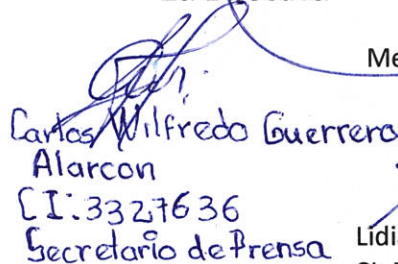 Me
Carlos Wilfredo Guerrero
Alarcon
CI:3327636
Secretario de Prensa
Lidia